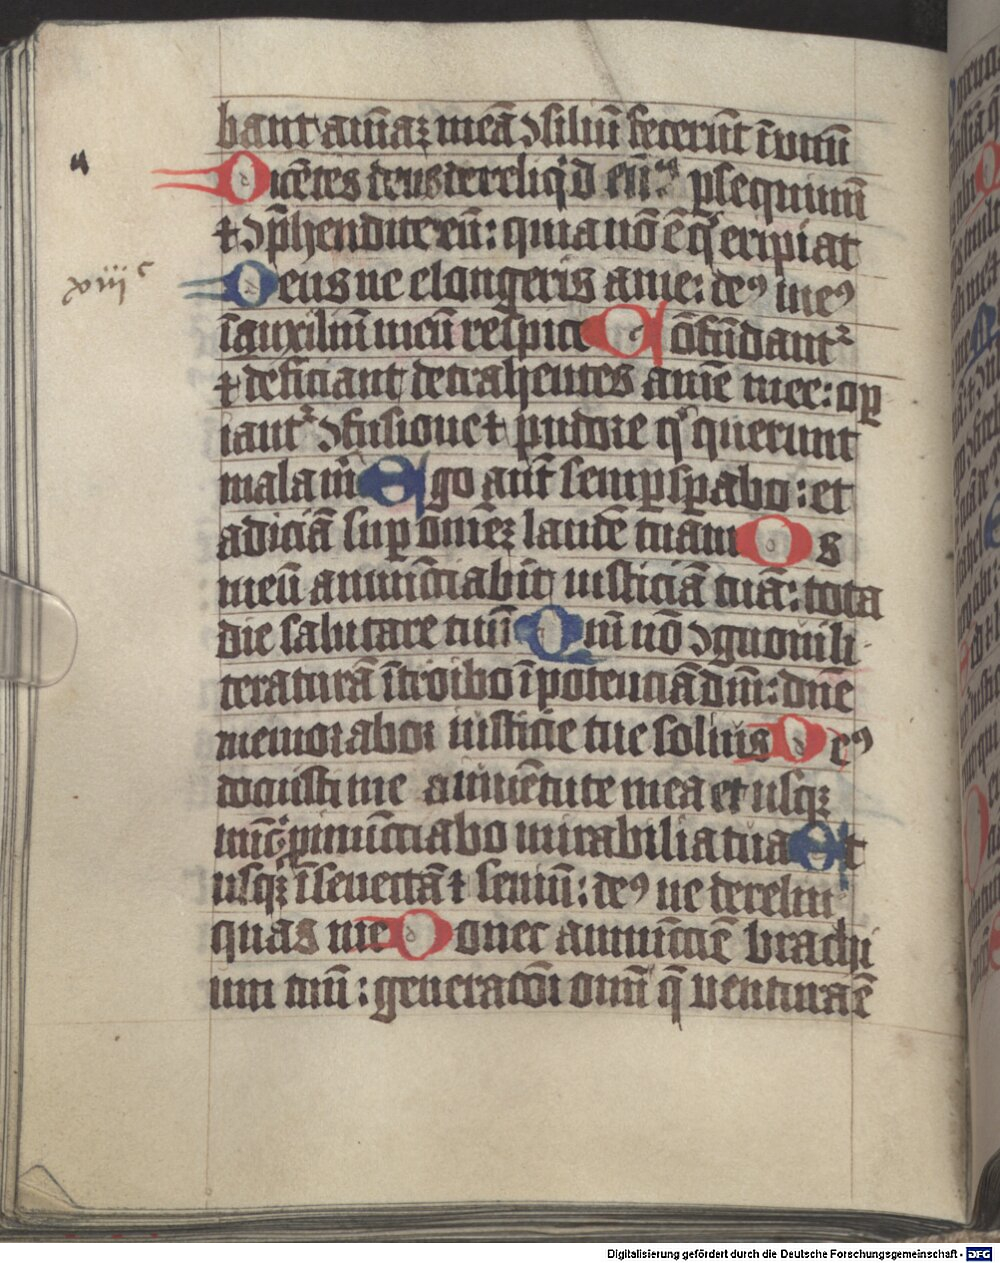 bant aīaꝫ meā ↄsiliū fecerūt ī vnū
Dicētes deus dereliq̇d eū ꝑsequimī
⁊ ↄp̄hendite eū: quia nō ē q̇ eripiat
xiij c
Deus ne elongeris a me: deꝰ meꝰ
ī auxiliū meū respice Cōfūdant᷑
⁊ deficiant detrahentes anīe mee: opꝑ
iant᷑ ↄfusione ⁊ pudore q̇ querunt
mala m̄ Ego aūt semꝑ sꝑabo: et
adiciā suꝑ omneꝫ laudē tuam Os
meū anunctiabit iusticiā tuā: tota
die salutare tuū Qm̄ nō ↄgnoui li
teraturā ītroibo ī potenciā dn̄i: dn̄e
memorabor iusticie tue soliꝰ Deꝰ
docuisti me a iuuētute mea et usqꝫ
nūc ꝓnunctiabo mirabilia tua Et
usqꝫ ī senectā ⁊ seniū: deꝰ ne derelin
quas me Donec annunctiē brachi
um tuū: generacōi omī q̄ ventura ē
Digitalisierung gefördert durch die Deutsche Forschungsgemeinschaft - DFG